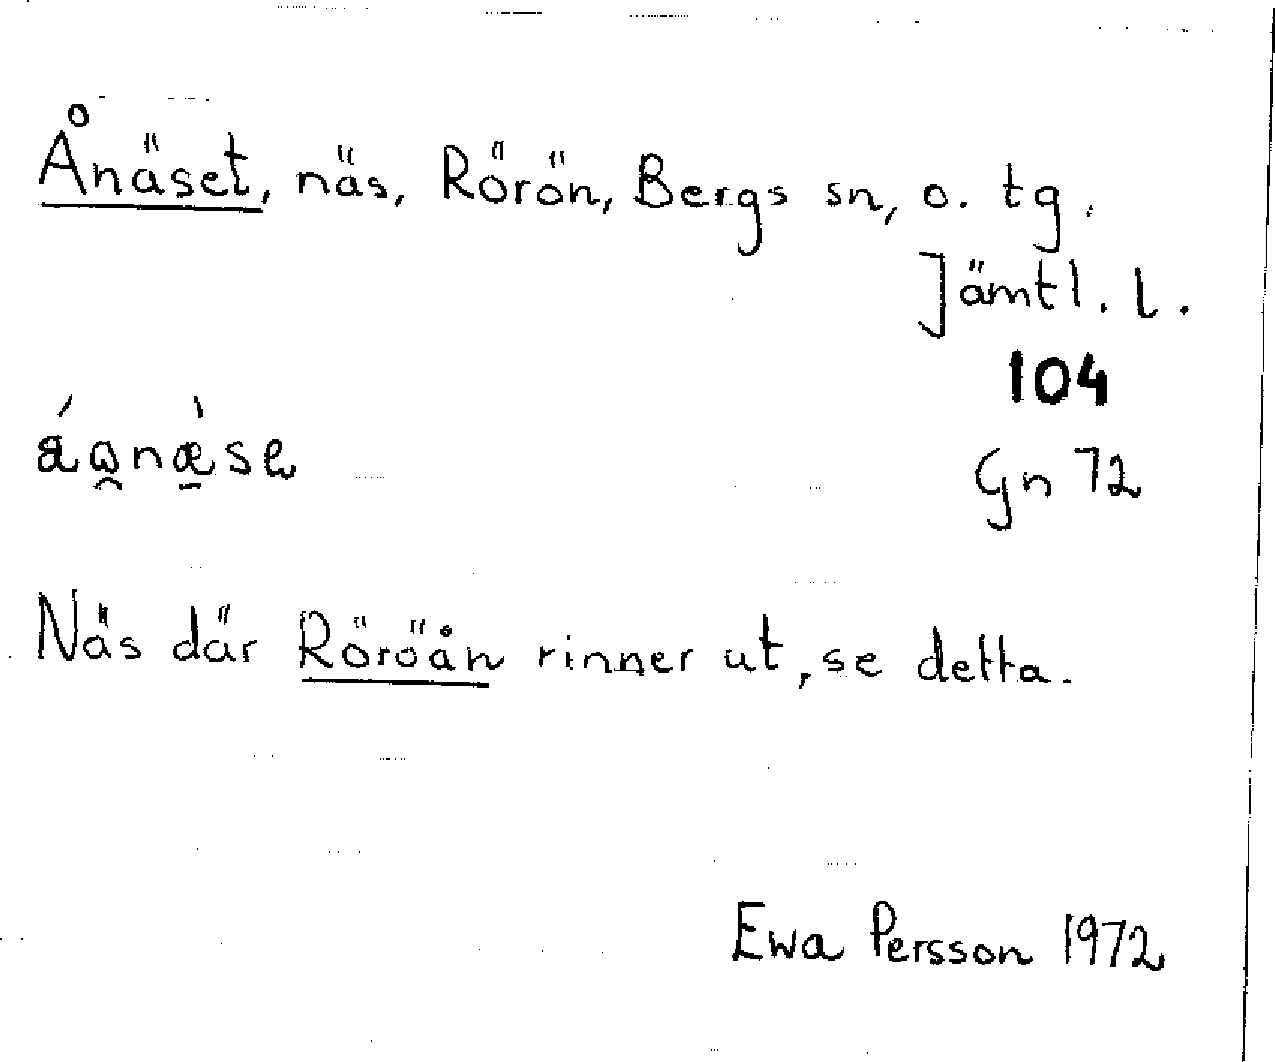 Ånäset, näs, Rörön, Bergs sn, o. tg.
Jämtl. l.
104
Gn 72
Näs där Röröån rinner ut, se detta.
Ewa Persson 1972